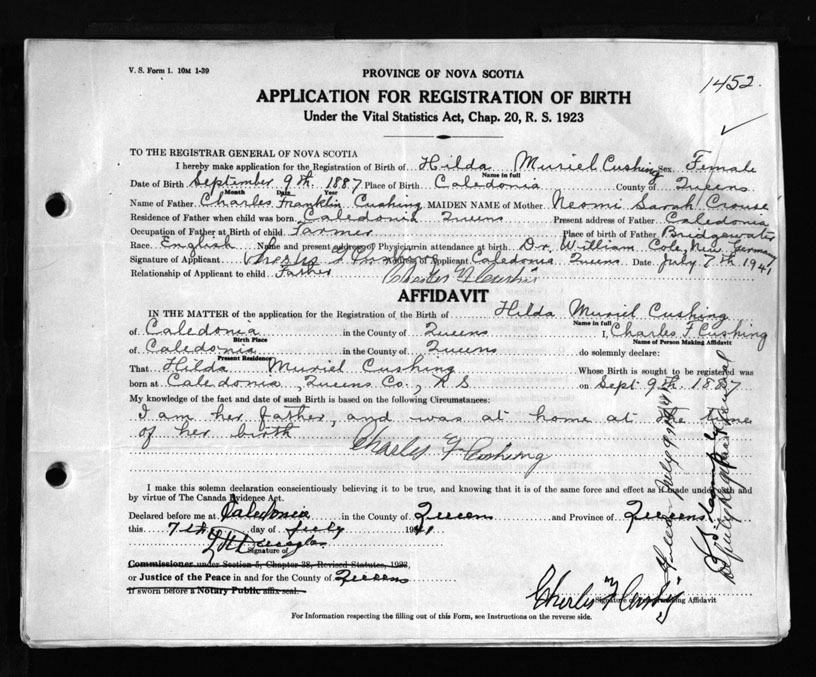 V. S. Form 1. 10M 1-39
1452
PROVINCE OF NOVA SCOTIA
APPLICATION FOR REGISTRATION OF BIRTH
Under the Vital Statistics Act, Chap. 20, R. S. 1923
TO THE REGISTRAR GENERAL OF NOVA SCOTIA
I hereby make application for the Registration of Birth of Hilda Muriel Cushing Sex Female
Name in full
Date of Birth September 9th. 1887 Place of Birth Caledonia County of Queens
Month Date Year
Name of Father Charles Franklin Cushing MAIDEN NAME of Mother Neomi Sarah Crouse
Residence of Father when child was born Caledonia Queens Present address of Father Caledonia
Occupation of Father at Birth of child Farmer Place of birth of Father Bridgewater
Race English Name and present address of Physician in attendance at birth Dr. William Cole, New Germany
Signature of Applicant Address of Applicant Caledonia Queens Date July 7th 1941
Relationship of Applicant to child Father
AFFIDAVIT
IN THE MATTER of the application for the Registration of the Birth of Hilda Muriel Cushing
Name in full
of Caledonia in the County of Queens I, Charles F Cushing
Birth Place Name of Person Making Affidavit
of Caledonia in the County of Queens do solemnly declare:
Present Residence
That Hilda Muriel Cushing Whose Birth is sought to be registered was
born at Caledonia, Queens Co., N S on Sept 9th. 1887
My knowledge of the fact and date of such Birth is based on the following Circumstances:
I am her father, and was at home at the time
of her birth
Charles F Cushing
I make this solemn declaration conscientiously believing it to be true, and knowing that it is of the same force and effect as if made under oath and
by virtue of The Canada Evidence Act.
Declared before me at Caledonia in the County of Queens and Province of Queens
this 7th day of July 1941
Signature of
Commissioner under Section 5, Chapter 38, Revised Statutes, 1923,
or Justice of the Peace in and for the County of Queens
If sworn before a Notary Public affix seal.
Charles F Cushing
Signature of Person Making Affidavit
For Information respecting the filling out of this Form, see Instructions on the reverse side.
Deputy Registrar General